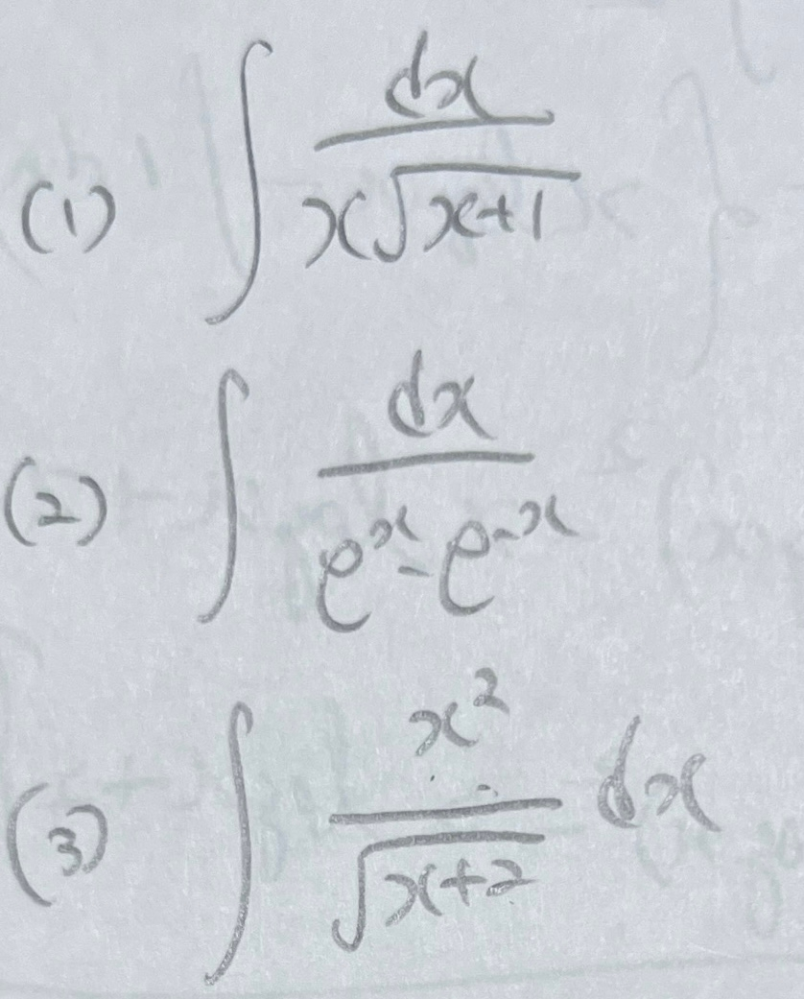 (1) ∫ dx / x√(x+1)
(2) ∫ dx / e^x - e^-x
(3) ∫ x² / √(x+2) dx